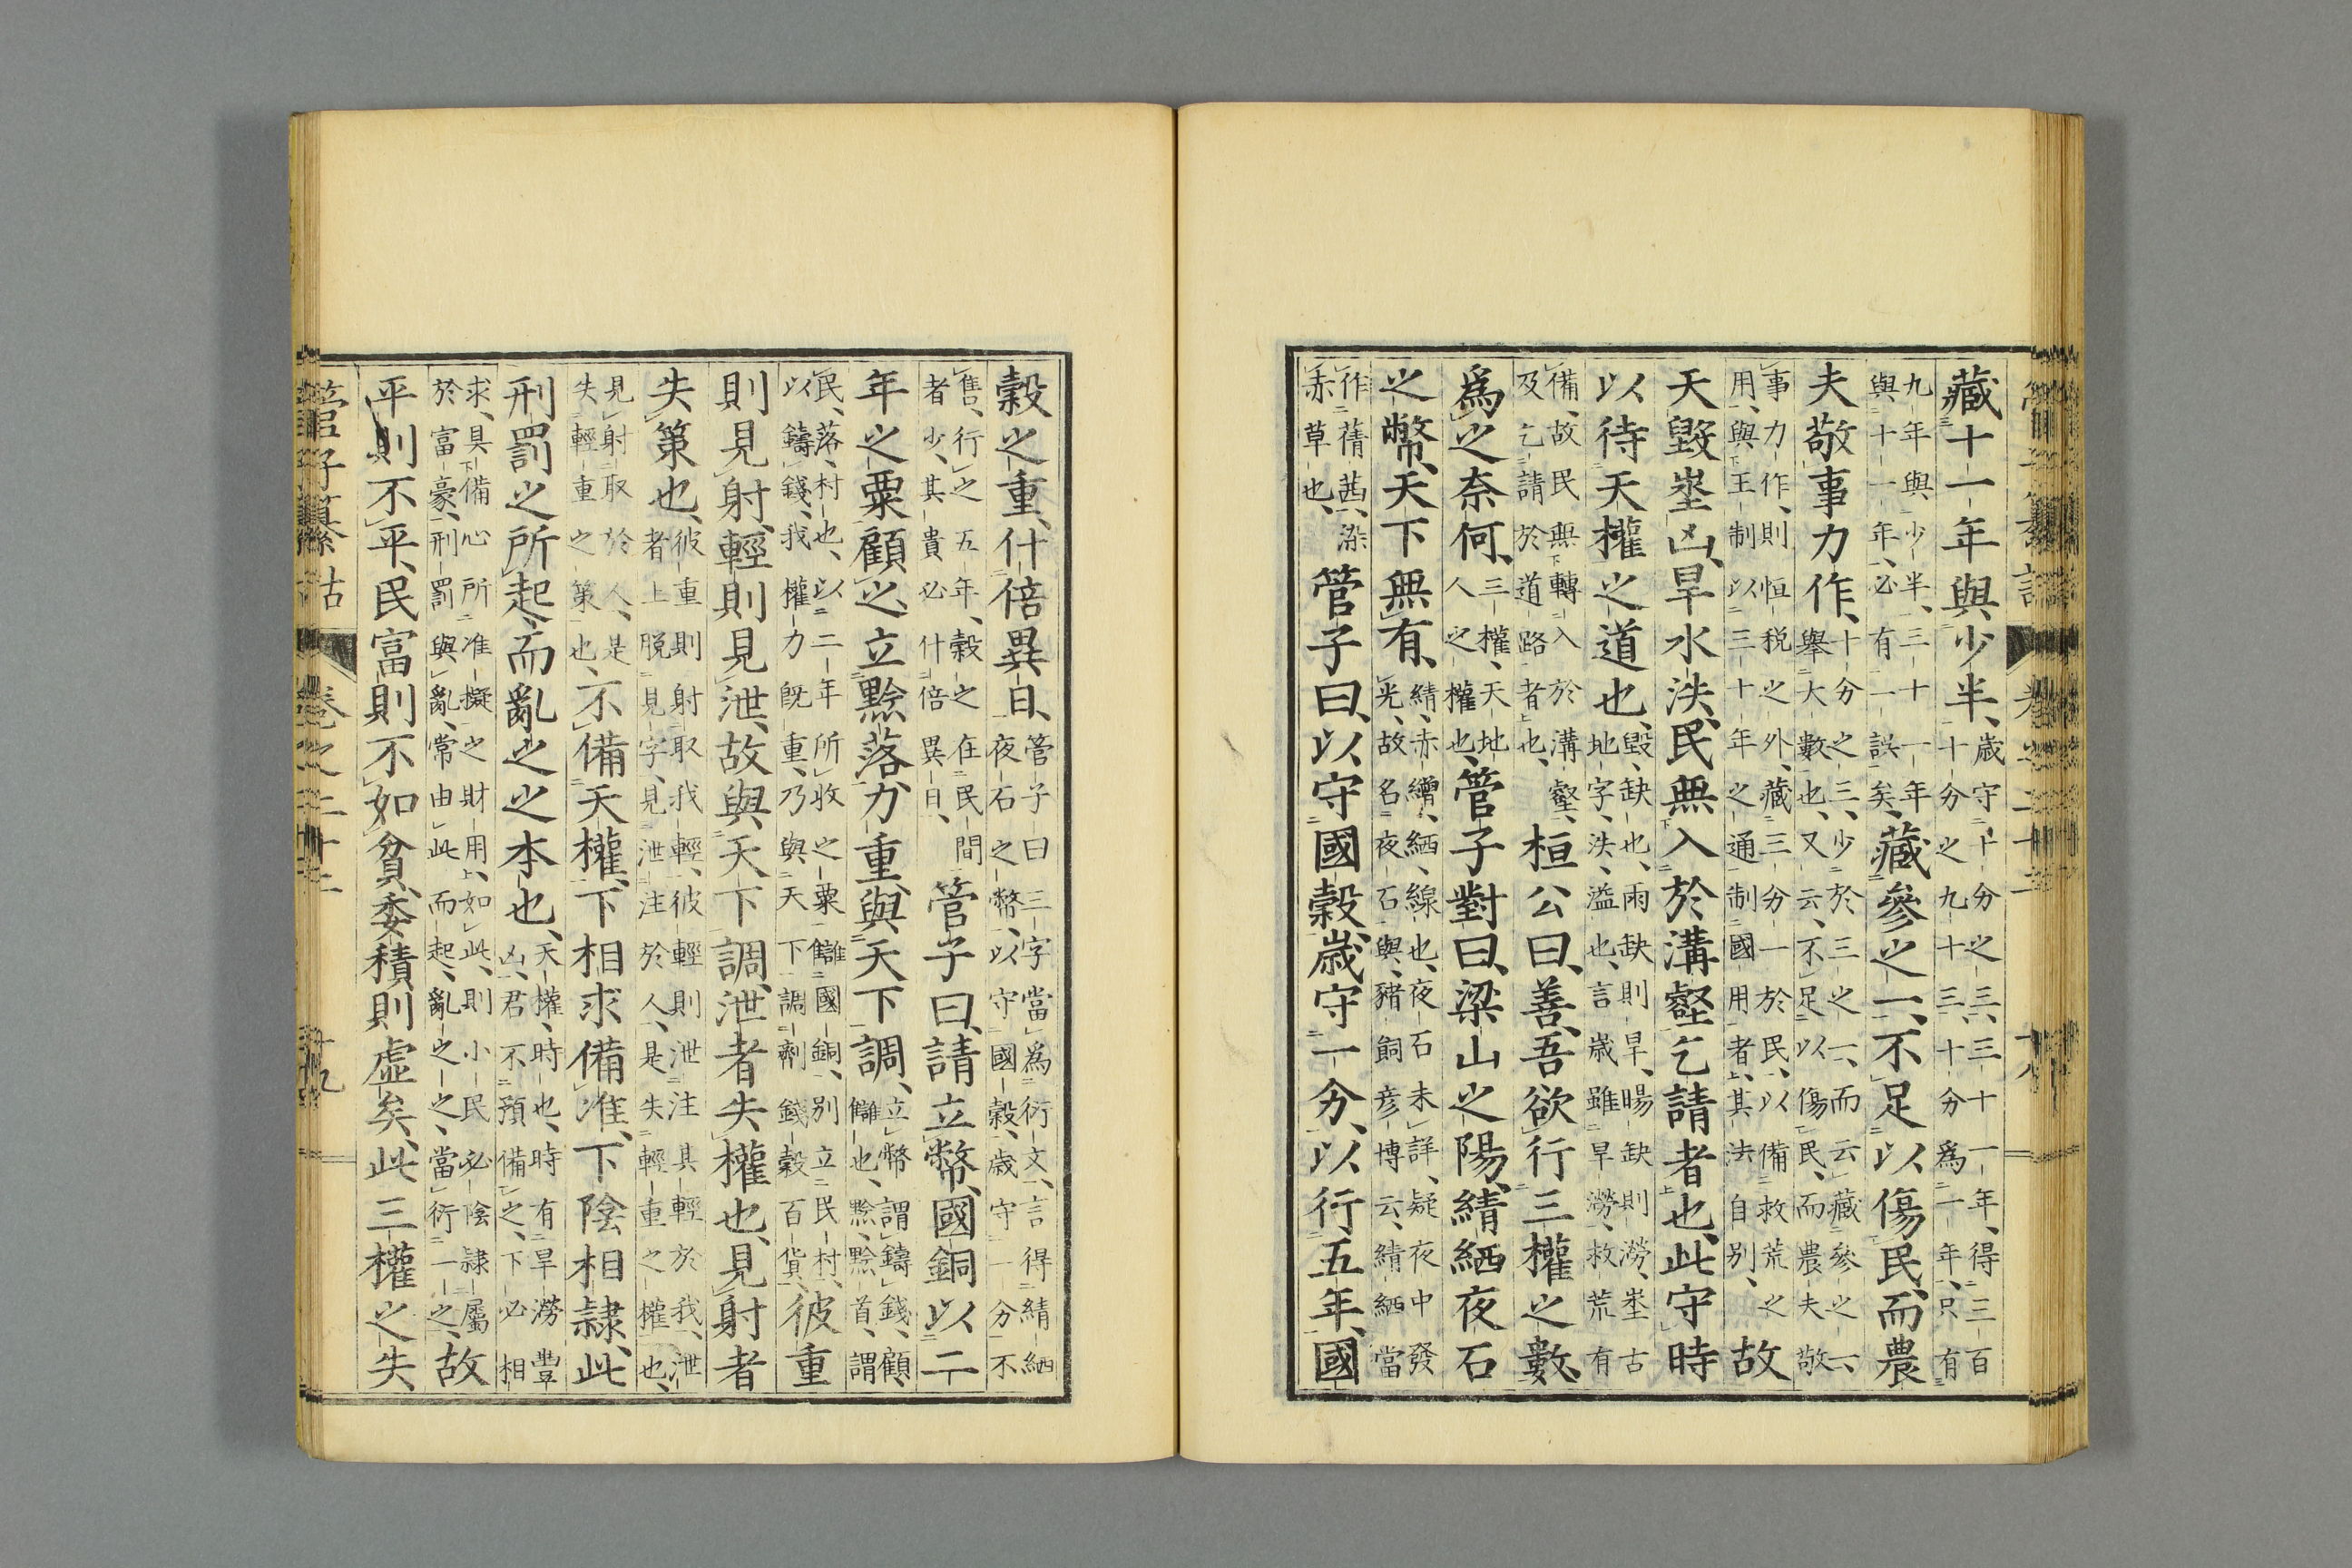 管子纂詁　卷之二十二　十八
藏十一年與少半、
歲守十分之三、三十一年、得三百
十分之九十三、十分爲一年、只有
九年與少半、三十一年
與十一年、必有一誤矣、
藏參之一、不足以傷民、而農
夫敬事力作、
十分之三、少於三之一、而云藏參之一、
舉大數也、又云、不足以傷民、而農夫敬
事力作、則恒税之外、藏三分一於民、以備救荒之
用、與王制以三十年之通制國用者、其法自別、
故
天毀埊凶、旱水泆、民無入於溝壑乞請者也、此守時
以待天權之道也、
毀、缺也、雨缺則旱、暘缺則澇、埊古
地字、泆、溢也、言歲雖旱澇、救荒有
備、故民無轉入於溝壑、
及乞請於道路者也、
桓公曰、善、吾欲行三權之數、
爲之奈何、
三權、天地
人之權也、
管子對曰、梁山之陽、綪絤夜石
之幣、天下無有、
綪、赤繒、絤、線也、夜石未詳、疑夜中發
光、故名夜石與、豬飼彦博云、綪絤當
作蒨茜、染
赤草也、
管子曰、以守國穀、歲守一分、以行五年、國
穀之重、什倍異日、
管子曰三字當爲衍文、言得綪絤
夜石之幣、以守國穀、歲守一分、不
售、行之五年、穀之在民間
者少、其貴必什倍異日、
管子曰、請立幣、國銅以二
年之粟顧之、立黔落、力重與天下調、
立幣謂鑄錢、顧、
讎也、黔、黔首、謂
民、落、村也、以二年所收之粟讎國銅、別立民村、
以鑄錢、我權力既重、乃與天下調劑錢穀百貨、
彼重
則見射、輕則見泄、故與天下調、泄者失權也、見射者
失策也、
彼重則射取我輕、彼輕則泄注其輕於我、泄
者上脱見字、見泄注於人、是失輕重之權也、
見射取於人、是
失輕重之策也、
不備天權、下相求備准、下陰相隷、此
刑罰之所起、而亂之之本也、
天權、時也、時有旱澇豐
凶、君不預備之、下必相
求、具備心所准擬之財用、如此、則小民必陰隷屬
於富豪、刑罰與亂、常由此而起、亂之之、當衍一之、
故
平則不平、民富則不如貧、委積則虚矣、此三權之失、
管子纂詁　卷之二十二　十九